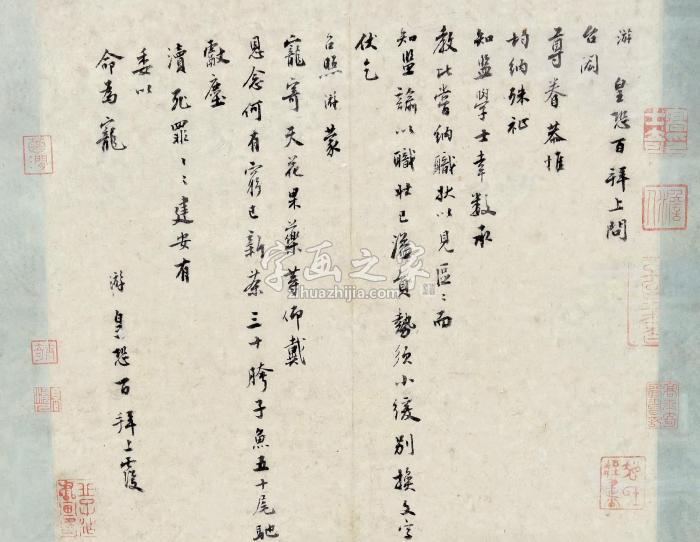 游皇恐百拜上問
台閤
尊眷恭惟
均納殊祉
知監學士幸數承
教比嘗納職狀以見區〻而
知監諭以職狀已溢員勢須小緩別換文字
伏乞
台照游蒙
寵寄天花果藥等仰戴
恩念何有窮已新茶三十胯子魚五十尾馳
獻塵
瀆死罪〻〻建安有
委以
命為寵
游皇恐百拜上覆
字画之家
zihuazhijia.com